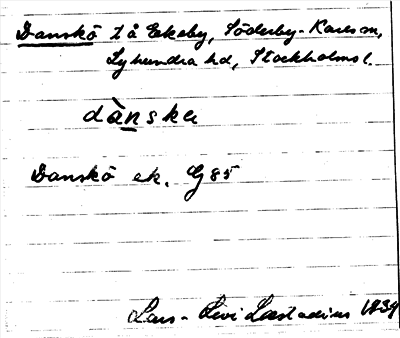 Danskö t å Ekeby, Söderby-Karls sn,
Lyhundra hd, Stockholms l.
dànska
Danskö ek. G 85
Lars-Levi Læstadius 1939